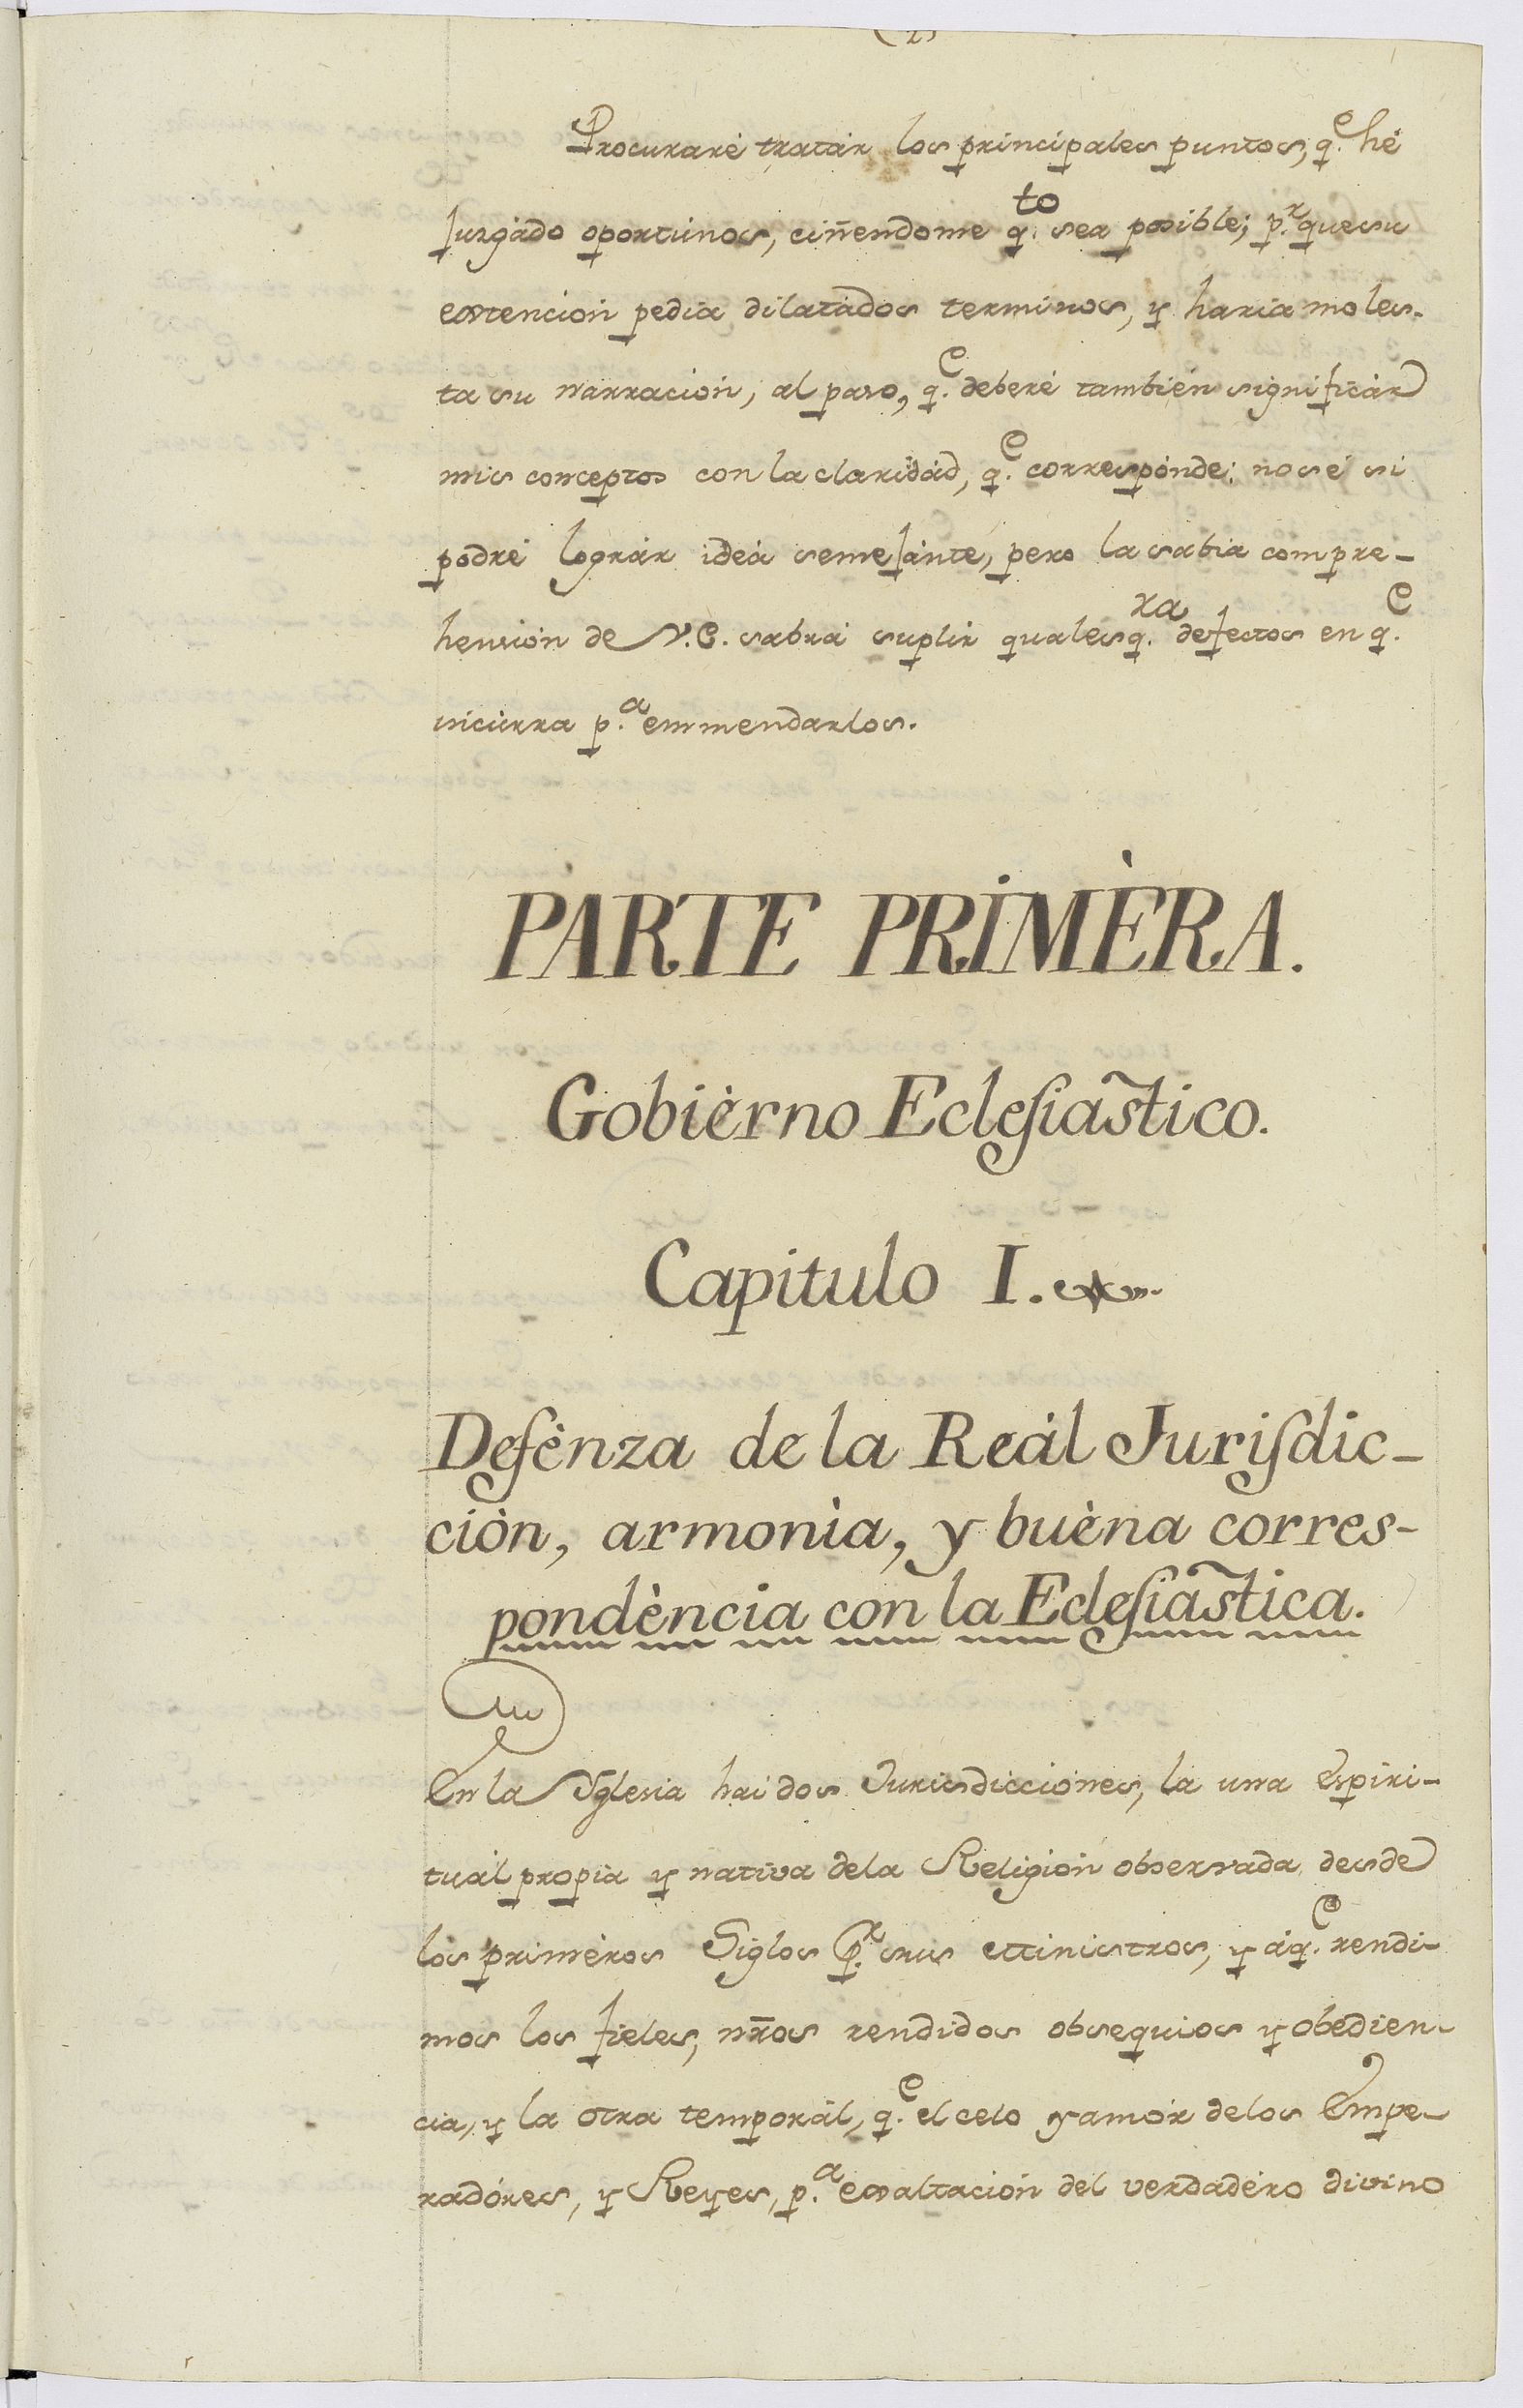 Procuraré tratár los principales puntos, q.e hé
juzgádo oportunos, ciñendome q.to sea posible; p.r que su
extención pedia dilatádos terminos, y haria moles-
ta su narración, al paso, q.e deberé también significár
mis conceptos con la claridád, q.e correspónde: no sé si
podré lográr ideá semejánte, pero la sabia compre-
hensión de V.E. sabrá suplir qualesq.ra defectos en q.e
incúrra p.a emmendarlos.
PARTE PRIMÈRA.
Gobièrno Eclesiastico.
Capitulo I.
Defènza de la Reál Jurisdic-
ciòn, armonìa, y buèna corres-
pondència con la Eclesiastica.
En la Yglesia hai dos Jurisdicciónes, la una espiri-
tuál propia y nativa dela Religión observada desde
los priméros Siglos p.r sus Ministros, y áq.e rendi-
mos los fieles, nr̃os rendidos obsequios y obedien-
cia, y la otra temporál, q.e el celo y amór delos Empe-
radóres, y Reyes, p.a exaltación del verdadéro divino